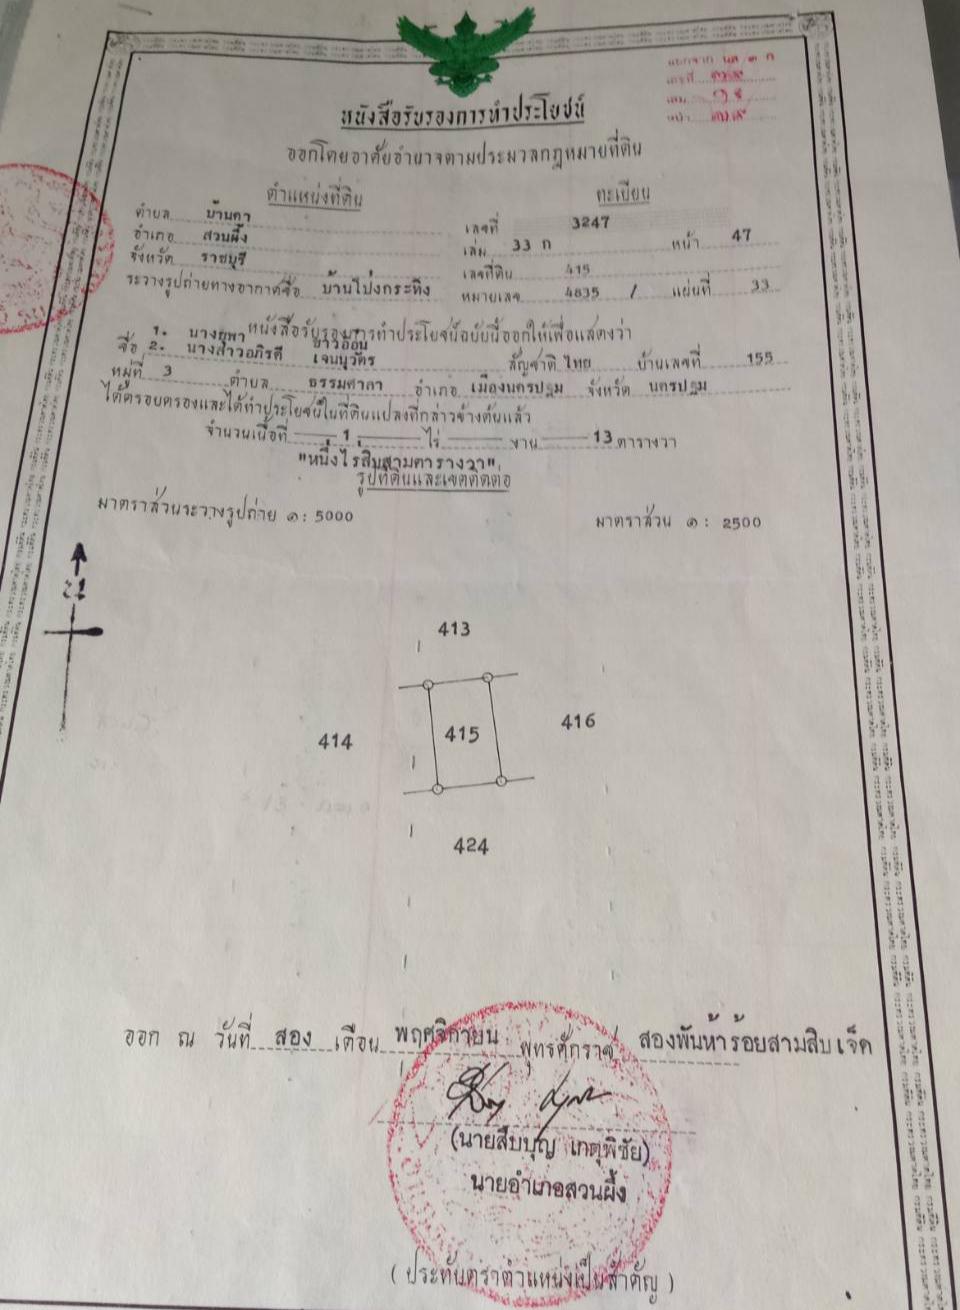 แยกจาก นส ๓ ก
เลขที่
เล่ม ๑๕
หน้า
หนังสือรับรองการทำประโยชน์
ออกโดยอาศัยอำนาจตามประมวลกฎหมายที่ดิน
ตำแหน่งที่ดิน ทะเบียน
ตำบล บ้านคา เลขที่ 3247
อำเภอ สวนผึ้ง เล่ม 33 ก หน้า 47
จังหวัด ราชบุรี เลขที่ดิน 415
ระวางรูปถ่ายทางอากาศชื่อ บ้านโป่งกระทิง หมายเลข 4835 / แผ่นที่ 33
หนังสือรับรองการทำประโยชน์ฉบับนี้ออกให้เพื่อแสดงว่า
1. นางยุพา ขาวอ่อน
ชื่อ 2. นางสาวอภิรดี เจนนุวัตร สัญชาติ ไทย บ้านเลขที่ 155
หมู่ที่ 3 ตำบล ธรรมศาลา อำเภอ เมืองนครปฐม จังหวัด นครปฐม
ได้ครอบครองและได้ทำประโยชน์ในที่ดินแปลงที่กล่าวข้างต้นแล้ว
จำนวนเนื้อที่ 1 ไร่ งาน 13 ตารางวา
"หนึ่งไร่สิบสามตารางวา"
รูปที่ดินและเขตติดต่อ
มาตราส่วนระวางรูปถ่าย ๑ : 5000 มาตราส่วน ๑ : 2500
น
413
414 415 416
424
ออก ณ วันที่ สอง เดือน พฤศจิกายน พุทธศักราช สองพันห้าร้อยสามสิบเจ็ด
(นายสืบบุญ เกตุพิชัย)
นายอำเภอสวนผึ้ง
( ประทับตราตำแหน่งเป็นสำคัญ )